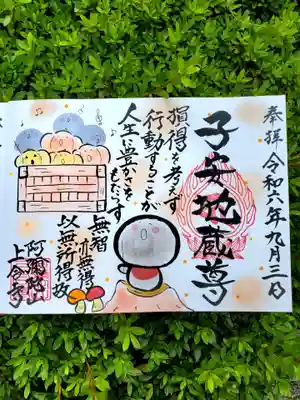 奉拝 令和六年九月三日
子安地蔵尊
損得を考えず
行動することが
人生に豊かさを
もたらす
無智
亦無得
以無所得故
阿弥陀山
上合寺